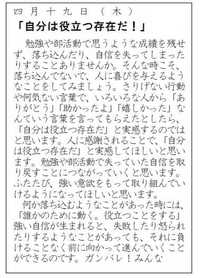 四月十九日（木）
「自分は役立つ存在だ！」
勉強や部活動で思うような成績を残せ
ず、落ち込んだり、自信を失ってしまった
りすることありませんか。そんな時こそ、
落ち込んでないで、人に喜びを与えるよう
なことをしてみましょう。さりげない行動
や何気ない言葉で、いろいろな人から「あ
りがとう」「助かったよ」「嬉しかった」な
んていう言葉を言ってもらえたとしたら、
「自分は役立つ存在だ」と実感するのでは
と思います。人に感謝されることで、「自分
は役立つ存在だ」と実感してほしいと思い
ます。勉強や部活動で失っていた自信を取
り戻すことにつながっていくと思います。
ふたたび、強い意欲をもって取り組んでい
けるようになってほしいと思います。
何か落ち込むようなことがあった時には、
「誰かのために動く。役立つことをする」
強い自信が生まれると、失敗したり怒られ
たりするようなことがあっても、それに負
けることなく前に向かって進んでいくこと
ができるのです。ガンバレ！みんな